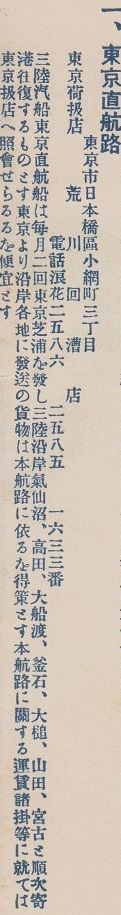 一、東京直航路
東京市日本橋區小網町三丁目
東京荷扱店　荒川回漕店
電話浪花二五八六　二五八五　一六三三番
三陸汽船東京直航船は毎月二回東京芝浦を發し三陸沿岸氣仙沼、高田、大船渡、釜石、大槌、山田、宮古と順次寄
港往復するものとす東京より沿岸各地に發送の貨物は本航路に依るを得策とす本航路に關する運賃諸掛等に就ては
東京扱店へ照會せらるるを便宜とす